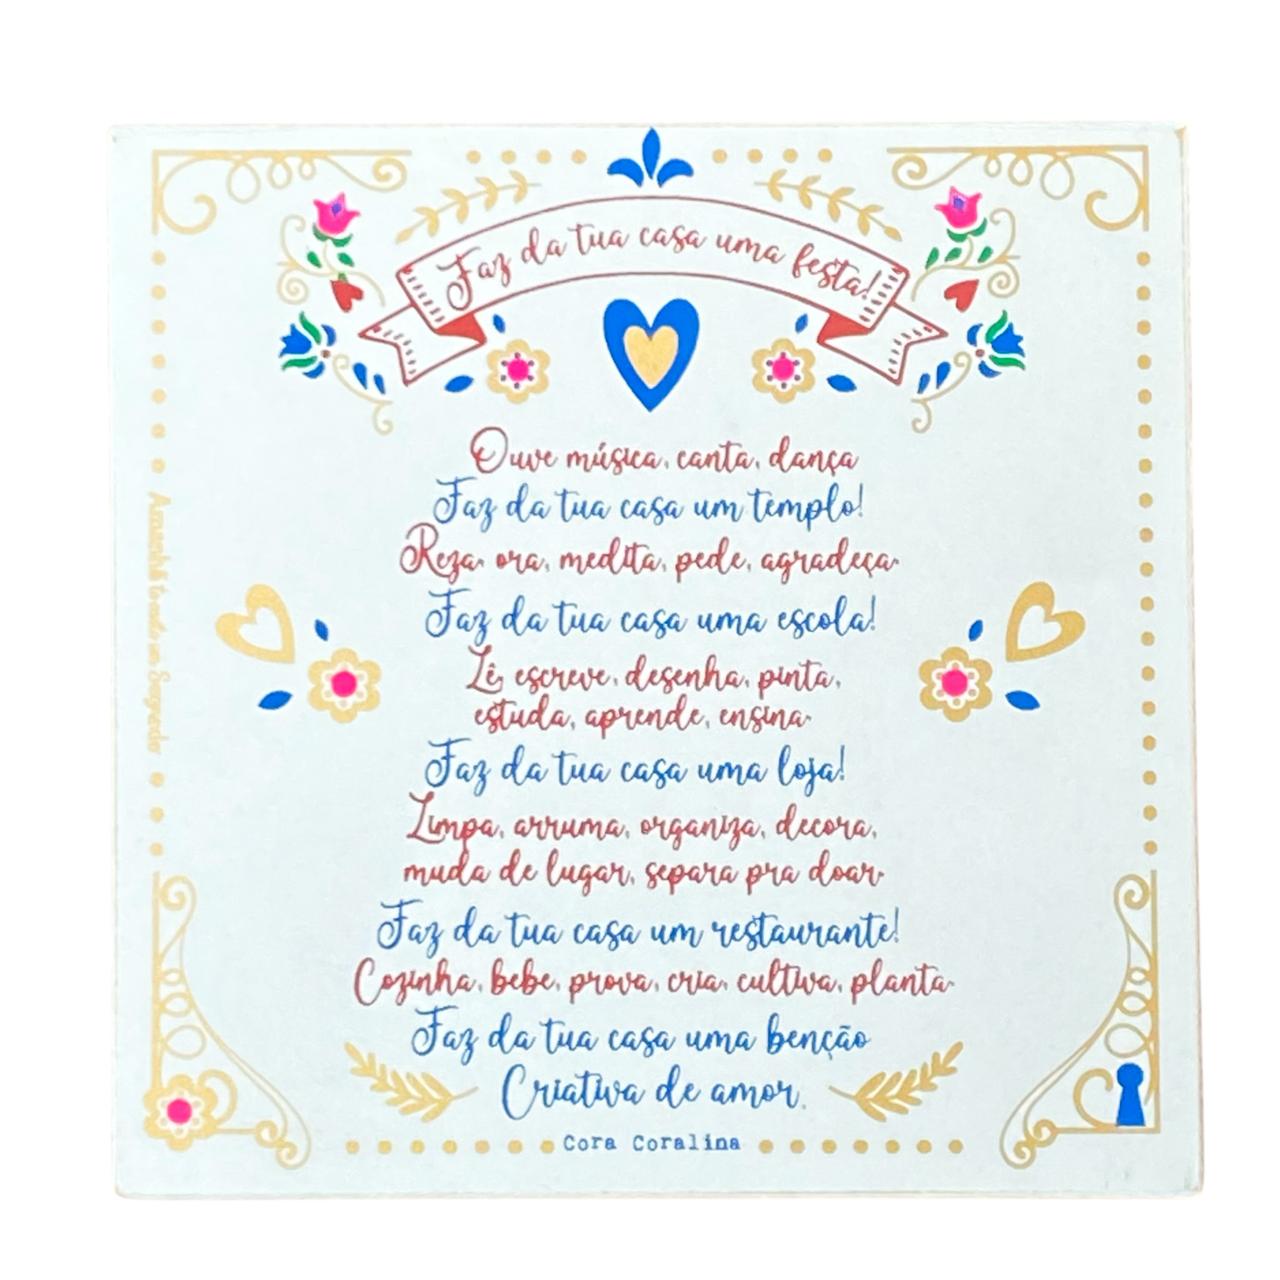 Faz da tua casa uma festa!
Ouve música, canta, dança
Faz da tua casa um templo!
Reza, ora, medita, pede, agradeça.
Faz da tua casa uma escola!
Lê, escreve, desenha, pinta,
estuda, aprende, ensina.
Faz da tua casa uma loja!
Limpa, arruma, organiza, decora,
muda de lugar, separa pra doar.
Faz da tua casa um restaurante!
Cozinha, bebe, prova, cria, cultiva, planta.
Faz da tua casa uma benção
Criativa de amor.
Cora Coralina
Segredo